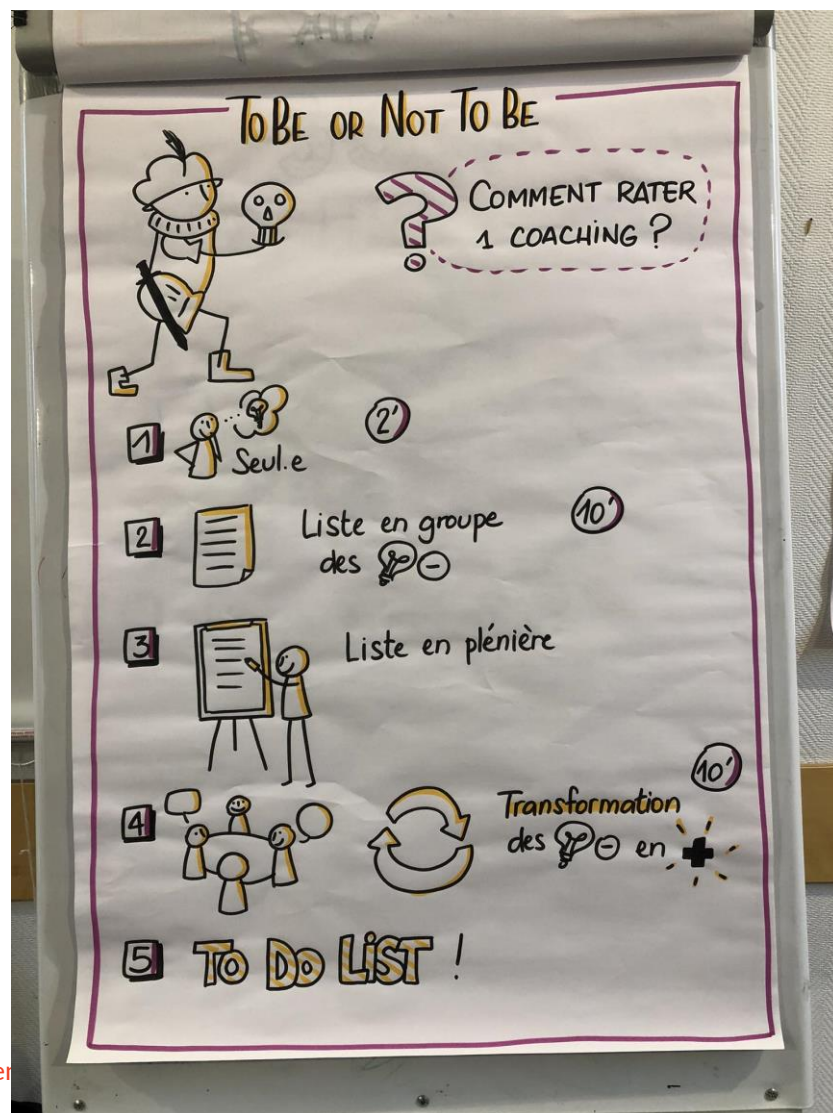 TO BE OR NOT TO BE
? COMMENT RATER
1 COACHING ?
1 Seul.e 2'
2 Liste en groupe 10'
des
3 Liste en plénière
10'
4 Transformation
des en
5 TO DO LIST !